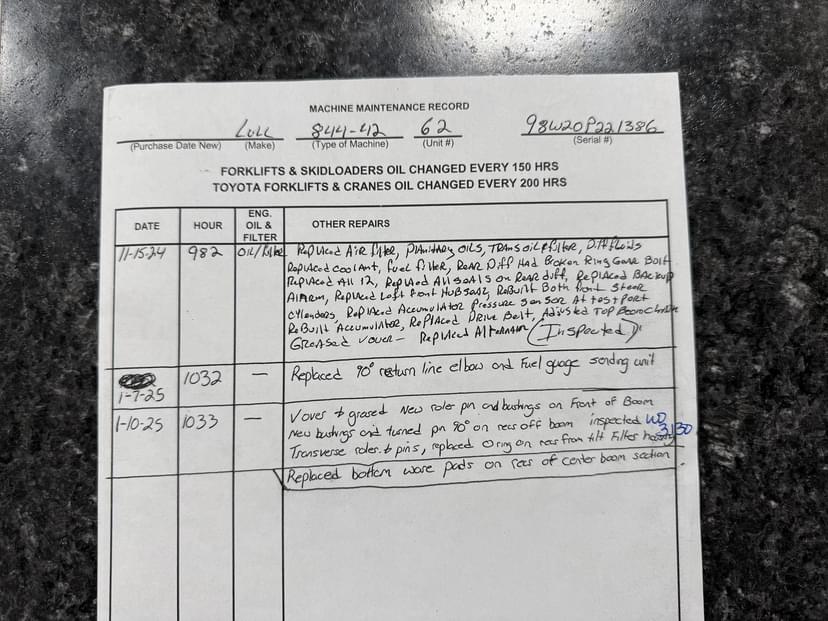 MACHINE MAINTENANCE RECORD
LULL 844-42 62 98W20P221386
(Purchase Date New) (Make) (Type of Machine) (Unit #) (Serial #)
FORKLIFTS & SKIDLOADERS OIL CHANGED EVERY 150 HRS
TOYOTA FORKLIFTS & CRANES OIL CHANGED EVERY 200 HRS
DATE HOUR ENG. OIL & FILTER OTHER REPAIRS
11-15-24 982 OIL/filter Replaced Air filter, Planitary OILS, TRANS oil & filter, Diff fluids
Replaced coolant, fuel filter, Rear Diff Had Broken Ring Gear Bolt
Replaced All 12, Replaced All seals on Rear diff, Replaced Backup
Alarm, Replaced Left front Hub seal, ReBuilt Both front steer
Cylenders, Replaced Accumulator Pressure sensor At test port
ReBuilt Accumulator, Replaced Drive Belt, Adjusted Top Boom
Greased Replaced Alternator (Inspected)
1-7-25 1032 — Replaced 90° return line elbow and Fuel guage sending unit
1-10-25 1033 — & grased New roler pin and bushings on Front of Boom
New bushings and turned pin 90° on rear off boom inspected WO
3130
Transverse rolers & pins, replaced O ring on rear from tilt Filter
Replaced bottom ware pads on rear of center boom section